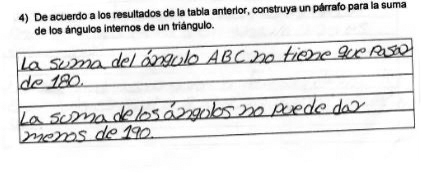 4) De acuerdo a los resultados de la tabla anterior, construya un párrafo para la suma
de los ángulos internos de un triángulo.
La suma del ángulo ABC no tiene que Pasar
de 180.
La suma de los ángulos no puede dar
menos de 190.